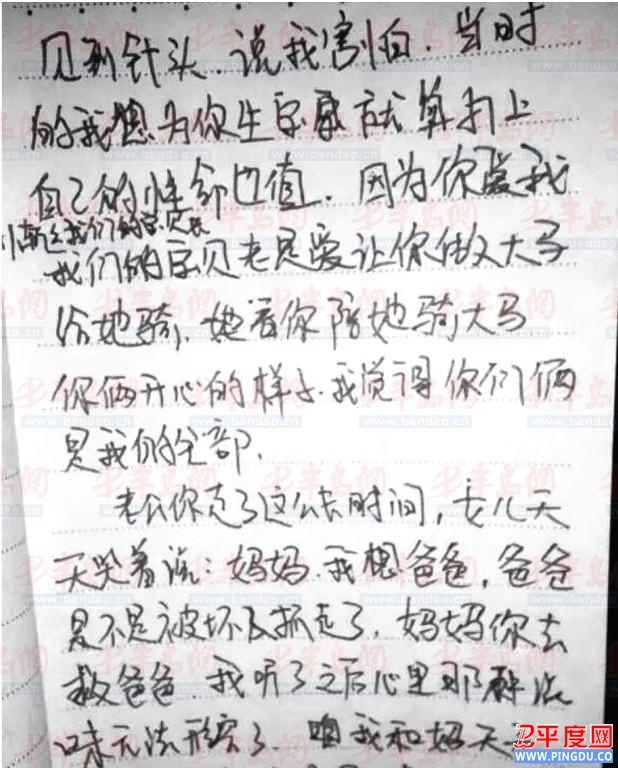 见到针头.说我害怕.当时
的我想为你生宝宝就算打上
自己的性命也值.因为你爱我
我们的宝贝老是爱让你做大马
给她骑.她看你陪她骑大马
你俩开心的样子.我觉得你们俩
是我的全部.
老公你走了这么长时间,女儿天
天哭着说:妈妈.我想爸爸,爸爸
是不是被坏人抓走了,妈妈你去
救爸爸.我听了之后心里那种滋
味无法形容了.咱我和妈天
半岛网
www.bandao.cn
平度网
WWW.PINGDU.CC